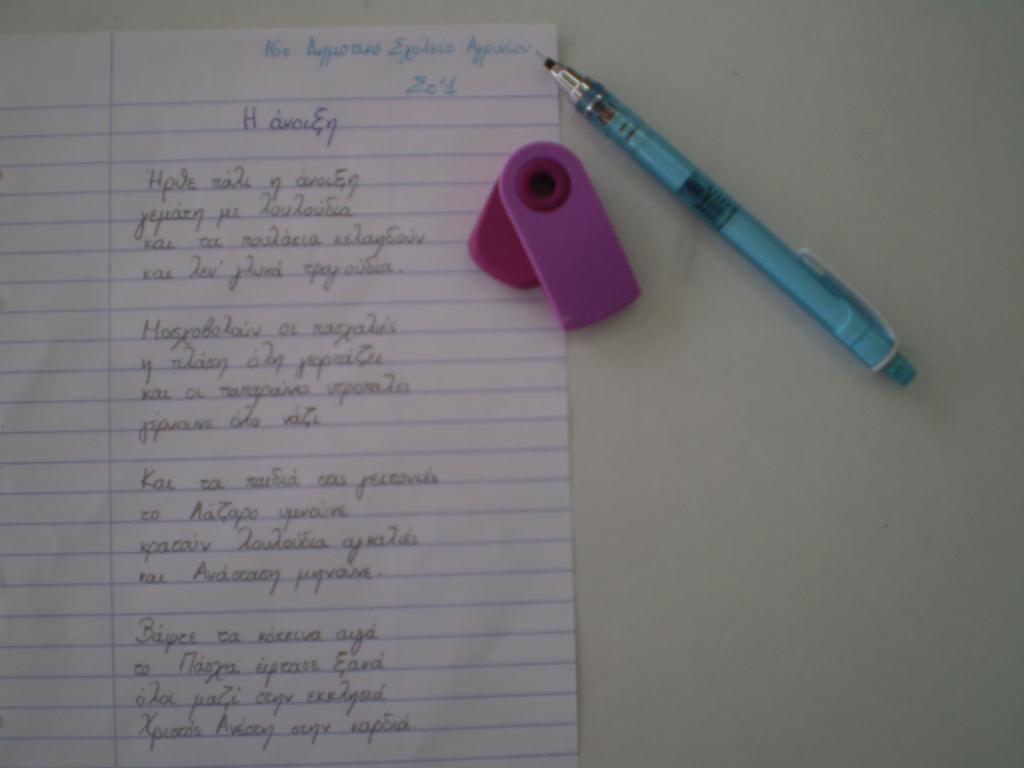 16ο Δημοτικό Σχολείο Αγρινίου
Στ'1
Η άνοιξη
Ήρθε πάλι η άνοιξη
γεμάτη με λουλούδια
και τα πουλάκια κελαηδούν
και λεν' γλυκά τραγούδια.
Μοσχοβολούν οι πασχαλιές
η πλάση όλη γιορτάζει
και οι παπαρούνες ντροπαλές
γέρνουνε όλο νάζι.
Και τα παιδιά στις γειτονιές
το Λάζαρο υμνούνε
κρατούν λουλούδια αγκαλιές
και Ανάσταση μηνούνε.
Βάψτε τα κόκκινα αυγά
το Πάσχα έφτασε ξανά
όλοι μαζί στην εκκλησιά
Χριστός Ανέστη στην καρδιά.